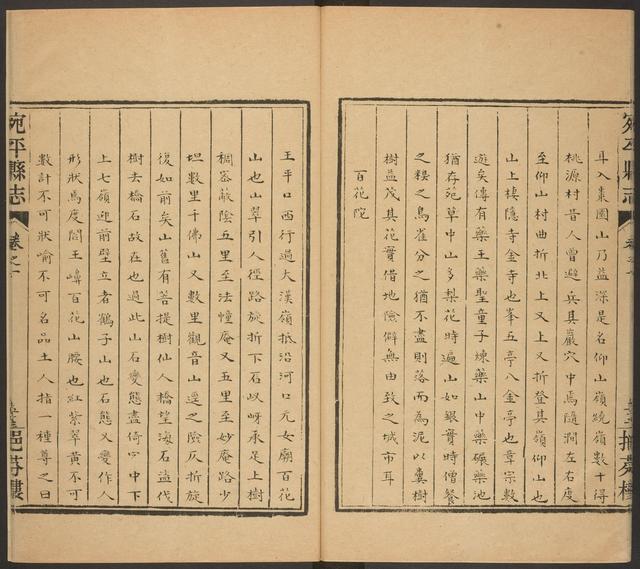 耳入棗園山乃益深是名仰山嶺蹺嶺數十得
桃源村昔人曾避兵其巖穴中馬隨澗左右度
至仰山村曲折北上又上又折登其嶺仰山也
山上棲隱寺金寺也峯五亭八金亭也章宗數
遊矣傳有藥王藥聖童子煉藥山中藥碾藥池
猶存苑草中山多梨花時遍山如銀實時僧餐
之糗之鳥雀分之猶不盡則落而為泥以糞樹
樹益茂其花實借地險僻無由致之城市耳
百花陀
王平口西行過大漢嶺抵沿河口元女廟百花
山也山翠引人徑路旋折下石以呀承足上樹
稠峚蔽陰五里至法幢庵又五里至妙庵路少
坦數里千佛山又數里觀音山遶之險仄折旋
後如前矣山舊有菩提樹仙人橋望海石盜伐
樹去橋石故在也過此山石變態盡倚心中下
上七嶺迎前壁立者鶴子山也石態又變作人
形狀馬度閻王鼻百花山腰也紅紫翠黃不可
數計不可狀喻不可名品土人指一種尊之曰
宛平縣志
卷之一